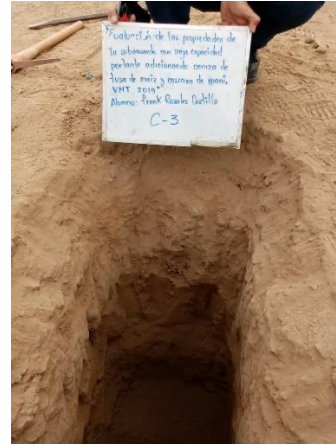 "Evaluación de las propiedades de
la subrasante con baja capacidad
portante adicionando ceniza de
tusa de maiz y cascara de mani,
VNT. 2019"
Alumno: Frank Rosales Castillo
C-3